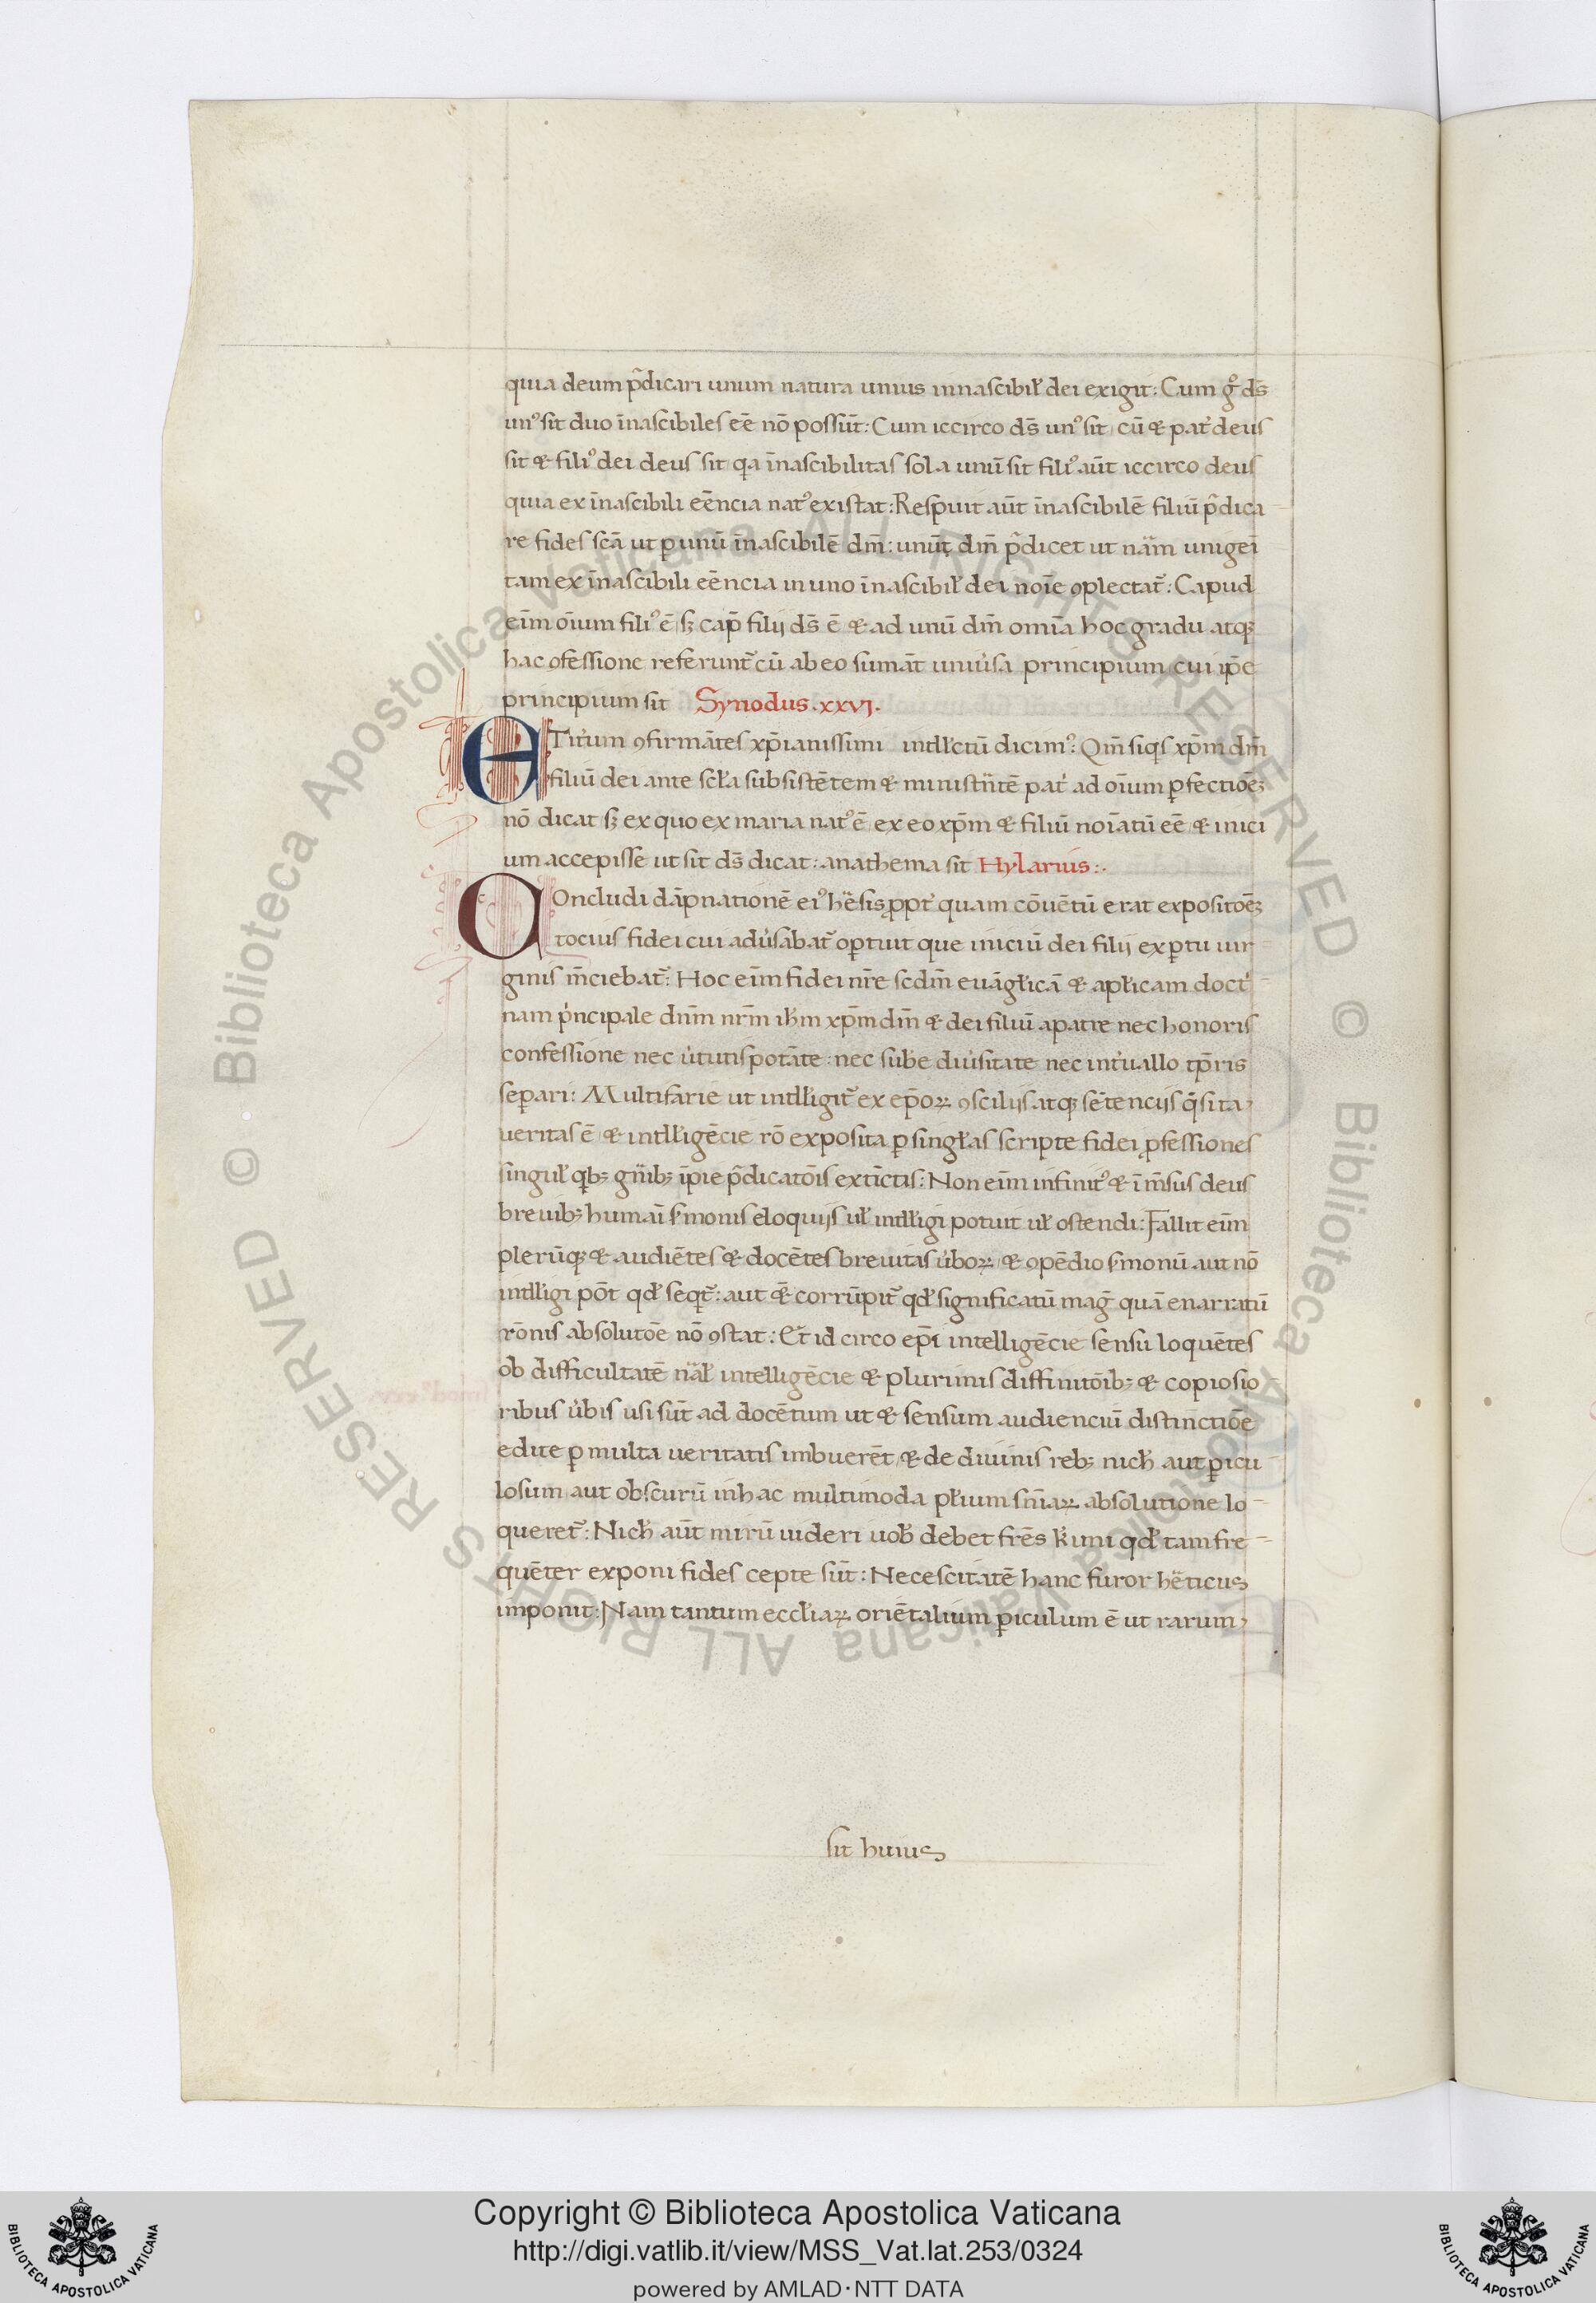 quia deum p̄dicari unum natura unius innascibił dei exigit: Cum gͦ ds̄
unꝰ sit duo īnascibiles eē nō possūt: Cum iccirco ds̄ unꝰ sit cū & pat̓ deus
sit & filiꝰ dei deus sit qa īnascibilitas sola unū sit filiꝰ aūt iccirco deus
quia ex īnascibili eēncia natꝰ existat: Respuit aūt īnascibilē filiū p̄dica
re fides scā ut ꝑ unū īnascibilē dm̄: unūꝫ dm̄ p̄dicet ut nām unigēi
tam ex īnascibili eēncia in uno īnascibił dei noīe ꝯplectat̄: Capud
eīm oīum filiꝰ ē sꝫ cap̄ filij ds̄ ē & ad unū dm̄ omīa hoc gradu atqꝫ
hac ofessione referunt̄ cū ab eo sumāt uniu̓sa principium cui ip̄e
principium sit Synodus .xxvj.
ETitu̓m ꝯfirmātes xp̄ianissimi intll̄ctū dicimꝰ. Qm̄ siqͥs xp̄m dm̄
filiū dei ante scła subsistētem & ministn̄tē pat̓ ad oīum ꝑfectiōeꝫ
nō dicat sꝫ ex quo ex maria natꝰ ē ex eo xp̄m & filiū noīatū eē & inici
um accepisse ut sit ds̄ dicat: anathema sit Hylarius:.
COncludi dāpnationē eiꝰ hēsis ꝓpt̓ quam cōuētū erat expositōeꝫ
tocius fidei cui adu̓sabat̄ optuit que iniciū dei filij ex ꝑtu uir
ginis m̄ciebat̄: Hoc eīm fidei nr̄e scdm̄ euāgłicā & apłicam doct̓
nam pͥncipale dnm̄ nrm̄ ihm̄ xp̄m dm̄ & dei filiū apatre nec honoris
confessione nec u̓tutis potāte: nec sub̄e diu̓sitate nec int̓uallo tp̄ris
seꝑari: Multifarie ut intlligit̄ ex ep̄oꝝ ꝯscilijs atqꝫ sētencijs q̄sita
ueritas ē & intlligēcie rō exposita ꝑ singłas scripte fidei ꝓfessiones
singuł qͥbꝫ gn̄ibꝫ īpie p̄dicatōis extīctis: Non eīm infinitꝰ & īm̄sus deus
breuibꝫ humāi s̓monis eloquijs uł intlligi potuit uł ostendi: Fallit eīm
plerūqꝫ & audiētes & docētes breuitas u̓boꝝ & ꝯpēdio s̓monū aut nō
intlligi pōt qd̄ seqt̄: aut &̄ corrūpit̄ qd̄ significatū maḡ quā enarratū
rōnis absolutōe nō ꝯstat: Et id circo ep̄i intelligēcie sensu loquētes
ob difficultatē nāł intelligēcie & plurimis diffinitōibꝫ & copiosio
ribus u̓bis usi sūt ad docētum ut & sensum audienciū distinctiōe
edite ꝑ multa ueritatis imbuerēt & de diuinis rebꝫ nich̄ aut ꝑicu
losum aut obscurū in hac multimoda płium sn̄iaꝝ absolutione lo
queret̄: Nich̄ aūt mirū uideri uob̄ debet frēs k̄imi qd̄ tam fre
quēter exponi fides cepte sūt: Necescitatē hanc furor hēticus
imponit: Nam tantum eccłiaꝝ oriētalium ꝑiculum ē ut rarum
sit huius
Copyright © Biblioteca Apostolica Vaticana
http://digi.vatlib.it/view/MSS_Vat.lat.253/0324
powered by AMLAD·NTT DATA